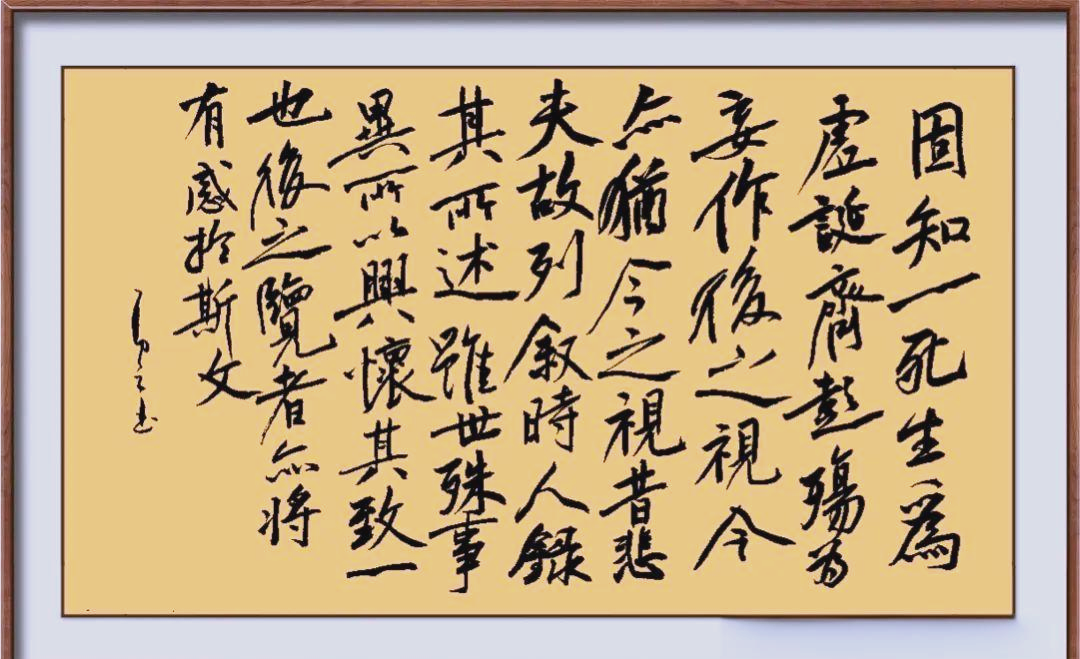 固知一死生爲
虚誕齊彭殤为
妄作後之視今
亦猶今之視昔悲
夫故列叙時人錄
其所述雖世殊事
異所以興懷其致一
也後之覽者亦将
有感扵斯文
书